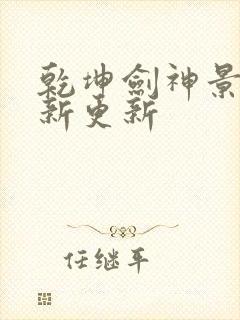 乾坤劍神景
新更新
任继平